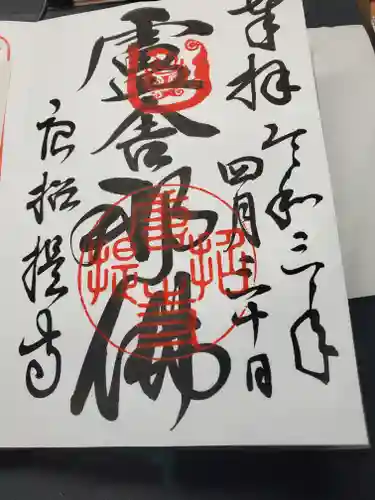 奉拝
令和三年
四月三十日
盧舎那佛
唐招提寺